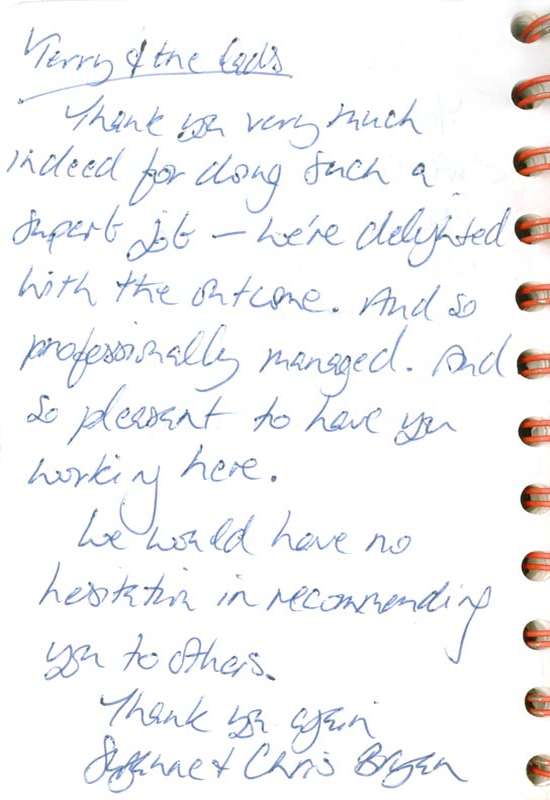 Terry & the lads
Thank you very much
indeed for doing such a
superb job – we're delighted
with the outcome. And so
professionally managed. And
so pleasant to have you
working here.
We would have no
hesitation in recommending
you to others.
Thank you again
Suzanne & Chris